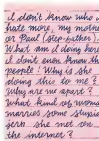 i don't know who i
hate more, my mother
or Paul (step-father)
What am i doing here
i don't even know these
people? Why is she
doing this to me?
Why are we apart?
What kind of woman
marries some stupid
jerk she met on
the internet?